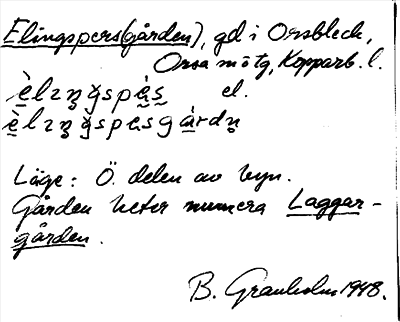 Elingspers(gården), gd i Orsbleck,
Orsa mötg, Kopparb. l.
el.
Läge: Ö. delen av byn.
Gården heter numera Laggar-
gården.
B. Granholm 1948.